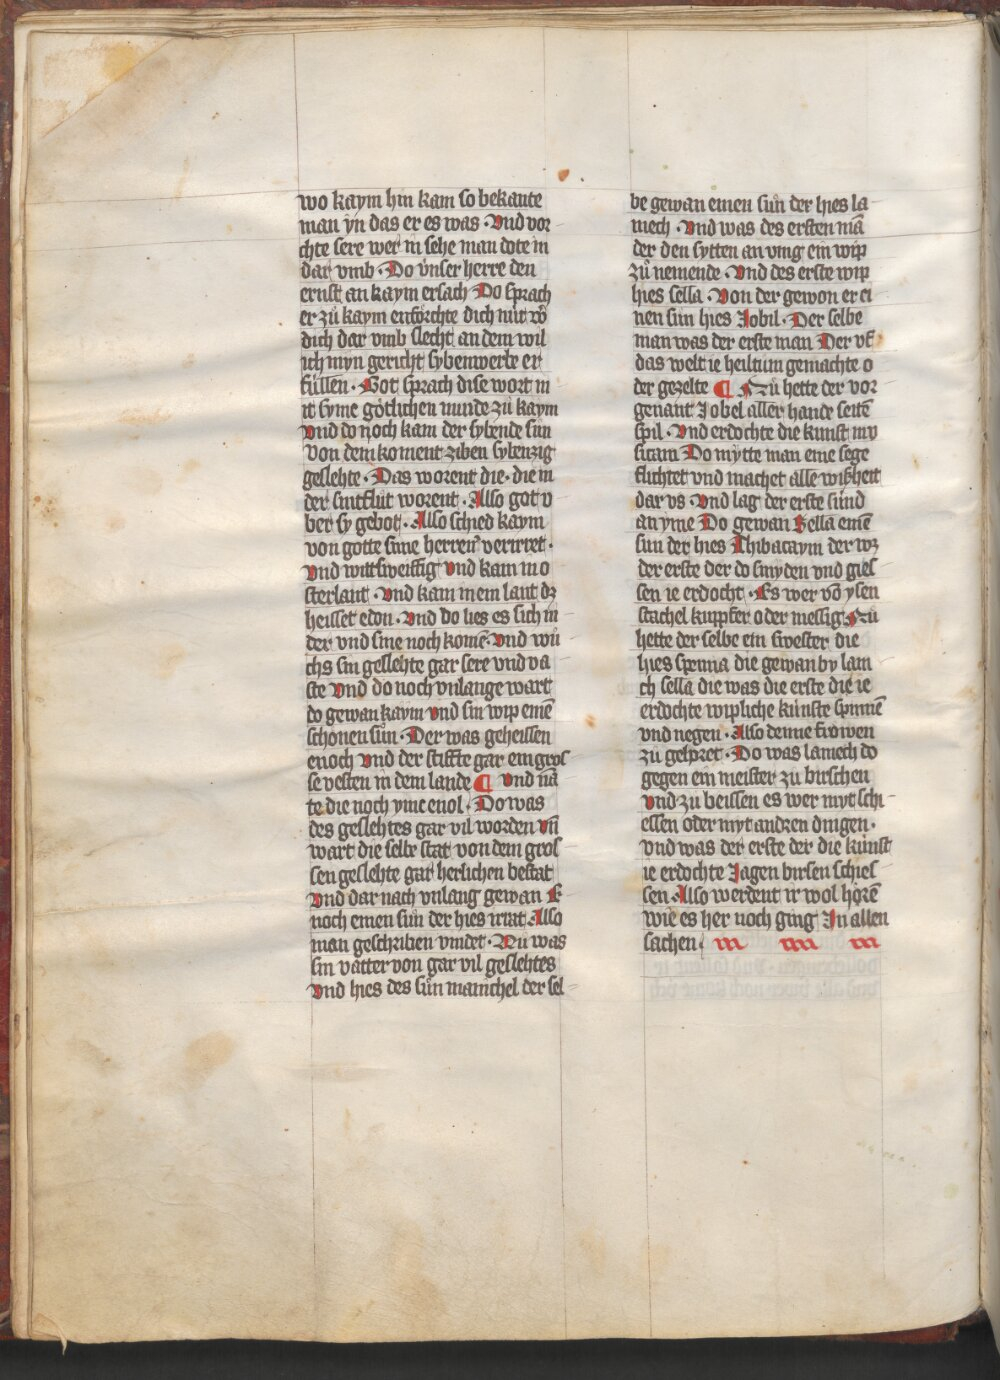 wo kaym hin kam so bekante
man yn das er es was · Vnd vor
chte sere wer in sehe man dote in
dar vmb · Do vnser herre den
ernst an kaym ersach Do sprach
er zů kaym enförchte dich nüt wō
dich dar vmb slecht an dem wil
ich myn gericht sybenwerbe er
füllen · Got sprach dise wort m
it syme götlichen munde zů kaym
Vnd do noch kam der sybende sun
von dem koment ziben sybenzig
geslehte · Das worent die · die in
der sintflüt worent · Also got v
ber sy gebot · Also schied kaym
von gotte sine herren
Vnd vnd kam in o
sterlant · Vnd kam in ein lant dz
heisset edon · Vnd do lies es sich in
der vnd sine noch komē · Vnd wů
chs sin geslehte gar sere vnd va
ste Vnd do noch vnlange wart
do gewan kaym vnd sin wip einē
schonen sůn · Der was geheissen
enoch Vnd der stiffte gar ein gros
se vesten in dem lande ¶ Vnd nā
te die noch yme enol · Do was
des geslehtes gar vil worden Vn̄
wart die selbe stat von dem gros
sen geslehte gar herlichen bestat
Vnd dar nach vnlang gewan E
noch einen sůn der hies irrat · Also
man geschriben vindet · Nů was
sin vatter von gar vil geslehtes
Vnd hies des sůn mainchel der sel
be gewan einen sůn der hies la
mech · Vnd was des ersten mā
der den sytten an ving ein wip
zů nemende · Vnd des erste wip
hies sella · Von der gewon er ei
nen sun hies Jobil · Der selbe
man was der erste man Der vf
das welt ie heiltum gemachte o
der gezelte ¶ Nů hette der vor
genant Jobel aller hande seitē
spil · Vnd erdochte die kunst mu
sicam Do mytte man eine sege
flichtet vnd machet alle wißheit
dar vs · Vnd lag der erste sünd
an yme Do gewan Sella einē
sun der hies Thibacaym der wz
der erste der do smyden vnd gies
sen ie erdocht · Es wer vō ysen
stachel kuppfer oder messig · Nů
hette der selbe ein swester die
hies spenna die gewan by lam
ch sella die was die erste die ie
erdochte wipliche künste spinnē
vnd negen · Also denne frowen
zů gehöret · Do was lamech do
gegen ein meister zů birschen
Vnd zů beissen es wer myt schi
essen oder myt andren dingen ·
Vnd was der erste der die künst
ie erdochte Jagen birsen schies
sen · Also werdent ir wol hörē
wie es her noch ging In allen
sachen ·